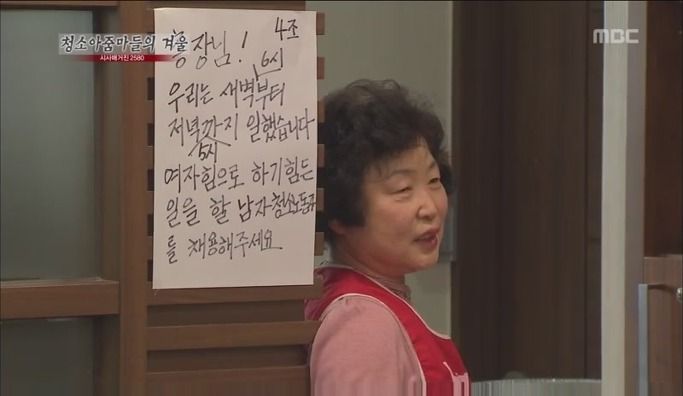 청소아줌마들의 겨울
시사매거진 2580
MBC
4조
총장님!
6시
우리는 새벽부터
저녁까지 일했습니다
5시
여자힘으로 하기힘든
일을 할 남자청소노동자
를 채용해주세요